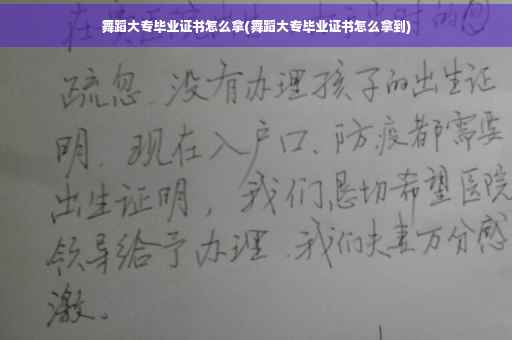 舞蹈大专毕业证书怎么拿(舞蹈大专毕业证书怎么拿到)
疏忽、没有办理孩子的出生证
明、现在入户口、防疫都需要
出生证明，我们恳切希望医院
领导给予办理、我们夫妻万分感
激。